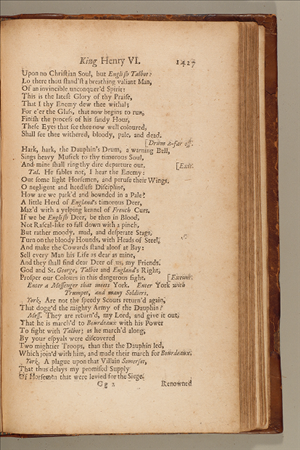 King Henry VI. 1427
Upon no Christian Soul, but English Talbot:
Lo there thou stand'st a breathing valiant Man,
Of an invincible unconquer'd Spirit:
This is the latest Glory of thy Praise,
That I thy Enemy dew thee withal;
For e'er the Glass, that now begins to run,
Finish the process of his sandy Hour,
These Eyes that see thee now well coloured,
Shall see thee withered, bloody, pale, and dead.
[Drum a-far off.
Hark, hark, the Dauphin's Drum, a warning Bell,
Sings heavy Musick to thy timorous Soul,
And mine shall ring thy dire departure out. [Exit.
Tal. He fables not, I hear the Enemy:
Out some light Horsemen, and peruse their Wings;
O negligent and heedless Discipline,
How are we park'd and bounded in a Pale?
A little Herd of England's timorous Deer,
Maz'd with a yelping kennel of French Curs.
If we be English Deer, be then in Blood,
Not Rascal-like to fall down with a pinch,
But rather moody, mad, and desperate Stags,
Turn on the bloody Hounds, with Heads of Steel,
And make the Cowards stand aloof at Bay:
Sell every Man his Life as dear as mine,
And they shall find dear Deer of us, my Friends.
God and St. George, Talbot and England's Right,
Prosper our Colours in this dangerous fight. [Exeunt.
Enter a Messenger that meets York. Enter York with
Trumpet, and many Soldiers.
York. Are not the speedy Scouts return'd again,
That dogg'd the mighty Army of the Dauphin?
Mess. They are return'd, my Lord, and give it out,
That he is march'd to Bourdeaux with his Power
To fight with Talbot; as he march'd along,
By your espyals were discovered
Two mightier Troops, than that the Dauphin led,
Which join'd with him, and made their march for Bourdeaux.
York. A plague upon that Villain Somerset,
That thus delays my promised Supply
Of Horsemen that were levied for the Siege.
Gg 2 Renowned